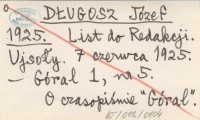 DŁUGOSZ Józef
1925. List do Redakcji.
Ujsoły. 7 czerwca 1925.
- Góral 1, nr 5.
O czasopiśmie "Góral".